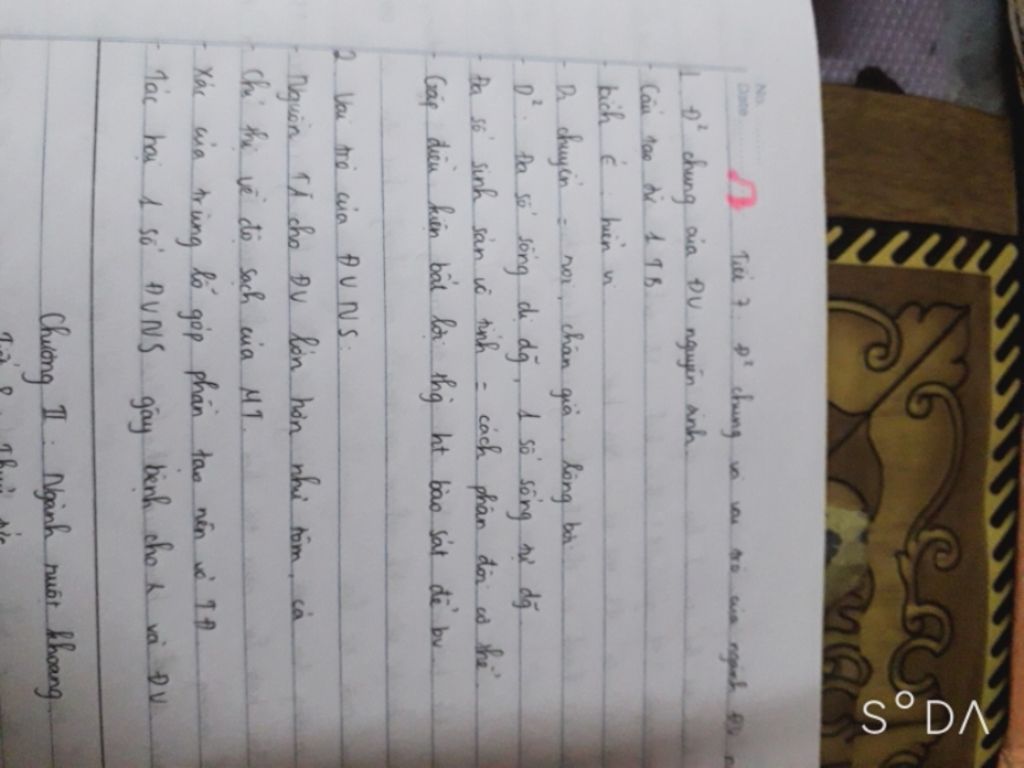 No.
Date
Tiết 7: Đ² chung và vai trò của ngành ĐV
1 Đ² chung của ĐV nguyên sinh.
- Cấu tạo từ 1 TB
- kích t : hiển vi
- Di chuyển = roi, chân giả, lông bơi.
- D²: Đa số sống dị dg, 1 số sống tự dg
- Đa số sinh sản vô tính = cách phân đôi cơ thể.
- Gặp điều kiện bất lợi thg ht bào sát để bv
2 Vai trò của ĐVNS:
- Nguồn TĂ cho ĐV lớn hơn như tôm, cá
- Chỉ thị về độ sạch của MT.
- Xác của trùng lỗ góp phần tạo nên vỏ TĐ
- Tác hại 1 số ĐVNS gây bệnh cho và ĐV
Chương II: Ngành ruột khoang
SODA